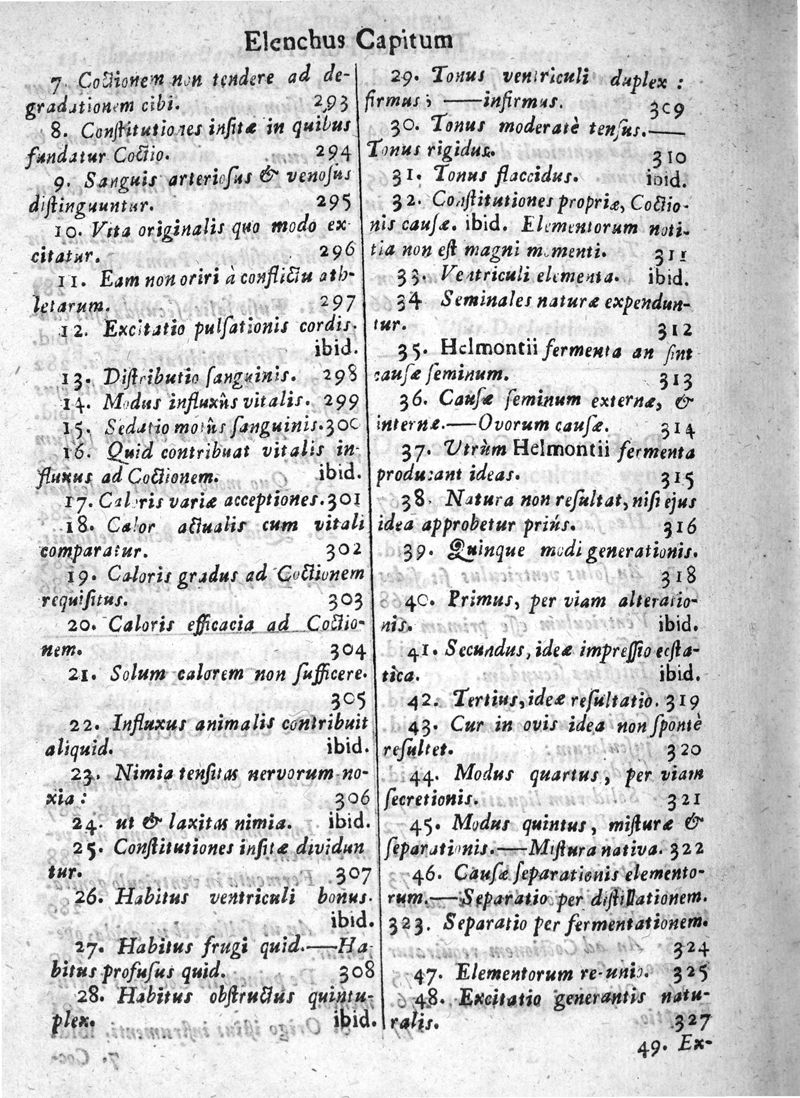 Elenchus Capitum
7. Coctionem non tendere ad de-
gradationem cibi. 293
8. Conſtitutiones inſitæ in quibus
fundatur Coctio. 294
9. Sanguis arterioſus & venoſus
diſtinguuntur. 295
10. Vita originalis quo modo ex-
citatur. 296
11. Eam non oriri à conflictu ath-
letarum. 297
12. Excitatio pulſationis cordis.
ibid.
13. Diſtributio ſanguinis. 298
14. Modus influxûs vitalis. 299
15. Sedatio motûs ſanguinis. 300
16. Quid contribuat vitalis in-
fluxus ad Coctionem. ibid.
17. Caloris variæ acceptiones. 301
18. Calor actualis cum vitali
comparatur. 302
19. Caloris gradus ad Coctionem
requiſitus. 303
20. Caloris efficacia ad Coctio-
nem. 304
21. Solum calorem non ſufficere.
305
22. Influxus animalis contribuit
aliquid. ibid.
23. Nimia tenſitas nervorum no-
xia: 306
24. ut & laxitas nimia. ibid.
25. Conſtitutiones inſitæ dividun
tur. 307
26. Habitus ventriculi bonus.
ibid.
27. Habitus frugi quid.—Ha-
bitus profuſus quid. 308
28. Habitus obſtructus quintu-
plex. ibid.
29. Tonus ventriculi duplex:
firmus; —infirmus. 309
30. Tonus moderatè tenſus.—
Tonus rigidus. 310
31. Tonus flaccidus. ibid.
32. Conſtitutiones propriæ, Coctio-
nis cauſæ. ibid. Elementorum noti-
tia non eſt magni momenti. 311
33. Ventriculi elementa. ibid.
34 Seminales naturæ expendun-
tur. 312
35. Helmontii fermenta an ſint
cauſæ ſeminum. 313
36. Cauſæ ſeminum externæ, &
internæ.—Ovorum cauſæ. 314
37. Utrùm Helmontii fermenta
producant ideas. 315
38. Natura non reſultat, niſi ejus
idea approbetur priùs. 316
39. Quinque modi generationis.
318
40. Primus, per viam alteratio-
nis. ibid.
41. Secundus, ideæ impreſſio ecſta-
tica. ibid.
42. Tertius, ideæ reſultatio. 319
43. Cur in ovis idea non ſpontè
reſultet. 320
44. Modus quartus, per viam
ſecretionis. 321
45. Modus quintus, miſturæ &
ſeparationis.—Miſtura nativa. 322
46. Cauſæ ſeparationis elemento-
rum.—Separatio per diſtillationem.
323. Separatio per fermentationem.
324
47. Elementorum re-unio. 325
48. Excitatio generantis natu-
ralis. 327
49. Ex-